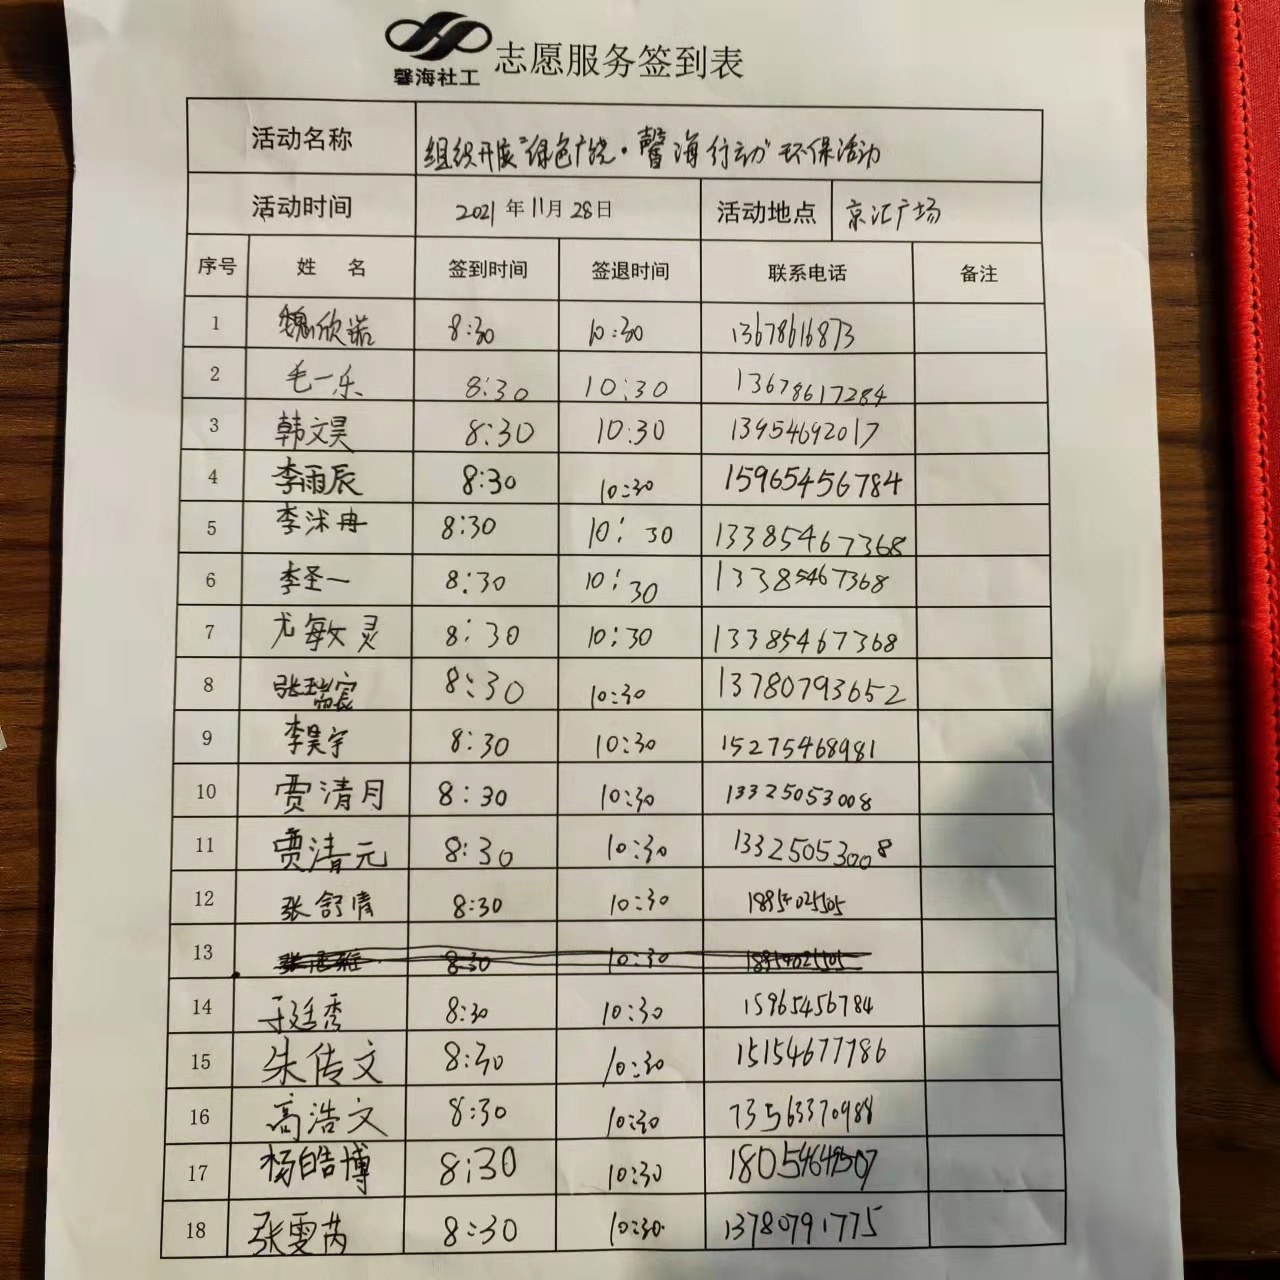 馨海社工 志愿服务签到表
活动名称 组织开展"绿色广饶·馨海行动"环保活动
活动时间 2021年11月28日 活动地点 京汇广场
序号 姓 名 签到时间 签退时间 联系电话 备注
1 魏欣诺 8:30 10:30 13678616873
2 毛一乐 8:30 10:30 13678617284
3 韩文昊 8:30 10:30 13954692017
4 李雨辰 8:30 10:30 15965456784
5 李沭冉 8:30 10:30 13385467368
6 李圣一 8:30 10:30 13385467368
7 尤敏灵 8:30 10:30 13385467368
8 张瑞宸 8:30 10:30 13780793652
9 李昊宇 8:30 10:30 15275468981
10 贾清月 8:30 10:30 13325053008
11 贾清元 8:30 10:30 13325053008
12 张舒情 8:30 10:30 18954025505
13 8:30 10:30
14 于廷秀 8:30 10:30 15965456784
15 朱传文 8:30 10:30 15154677786
16 高浩文 8:30 10:30 13563370988
17 杨皓博 8:30 10:30
18 张雯芮 8:30 10:30 13780791775